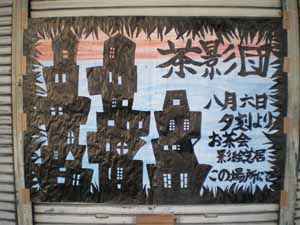 茶影団
八月六日
夕刻より
お茶会
影絵芝居
この場所にて